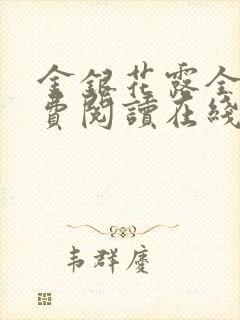 金銀花露全
費閱讀在綫
韦群慶